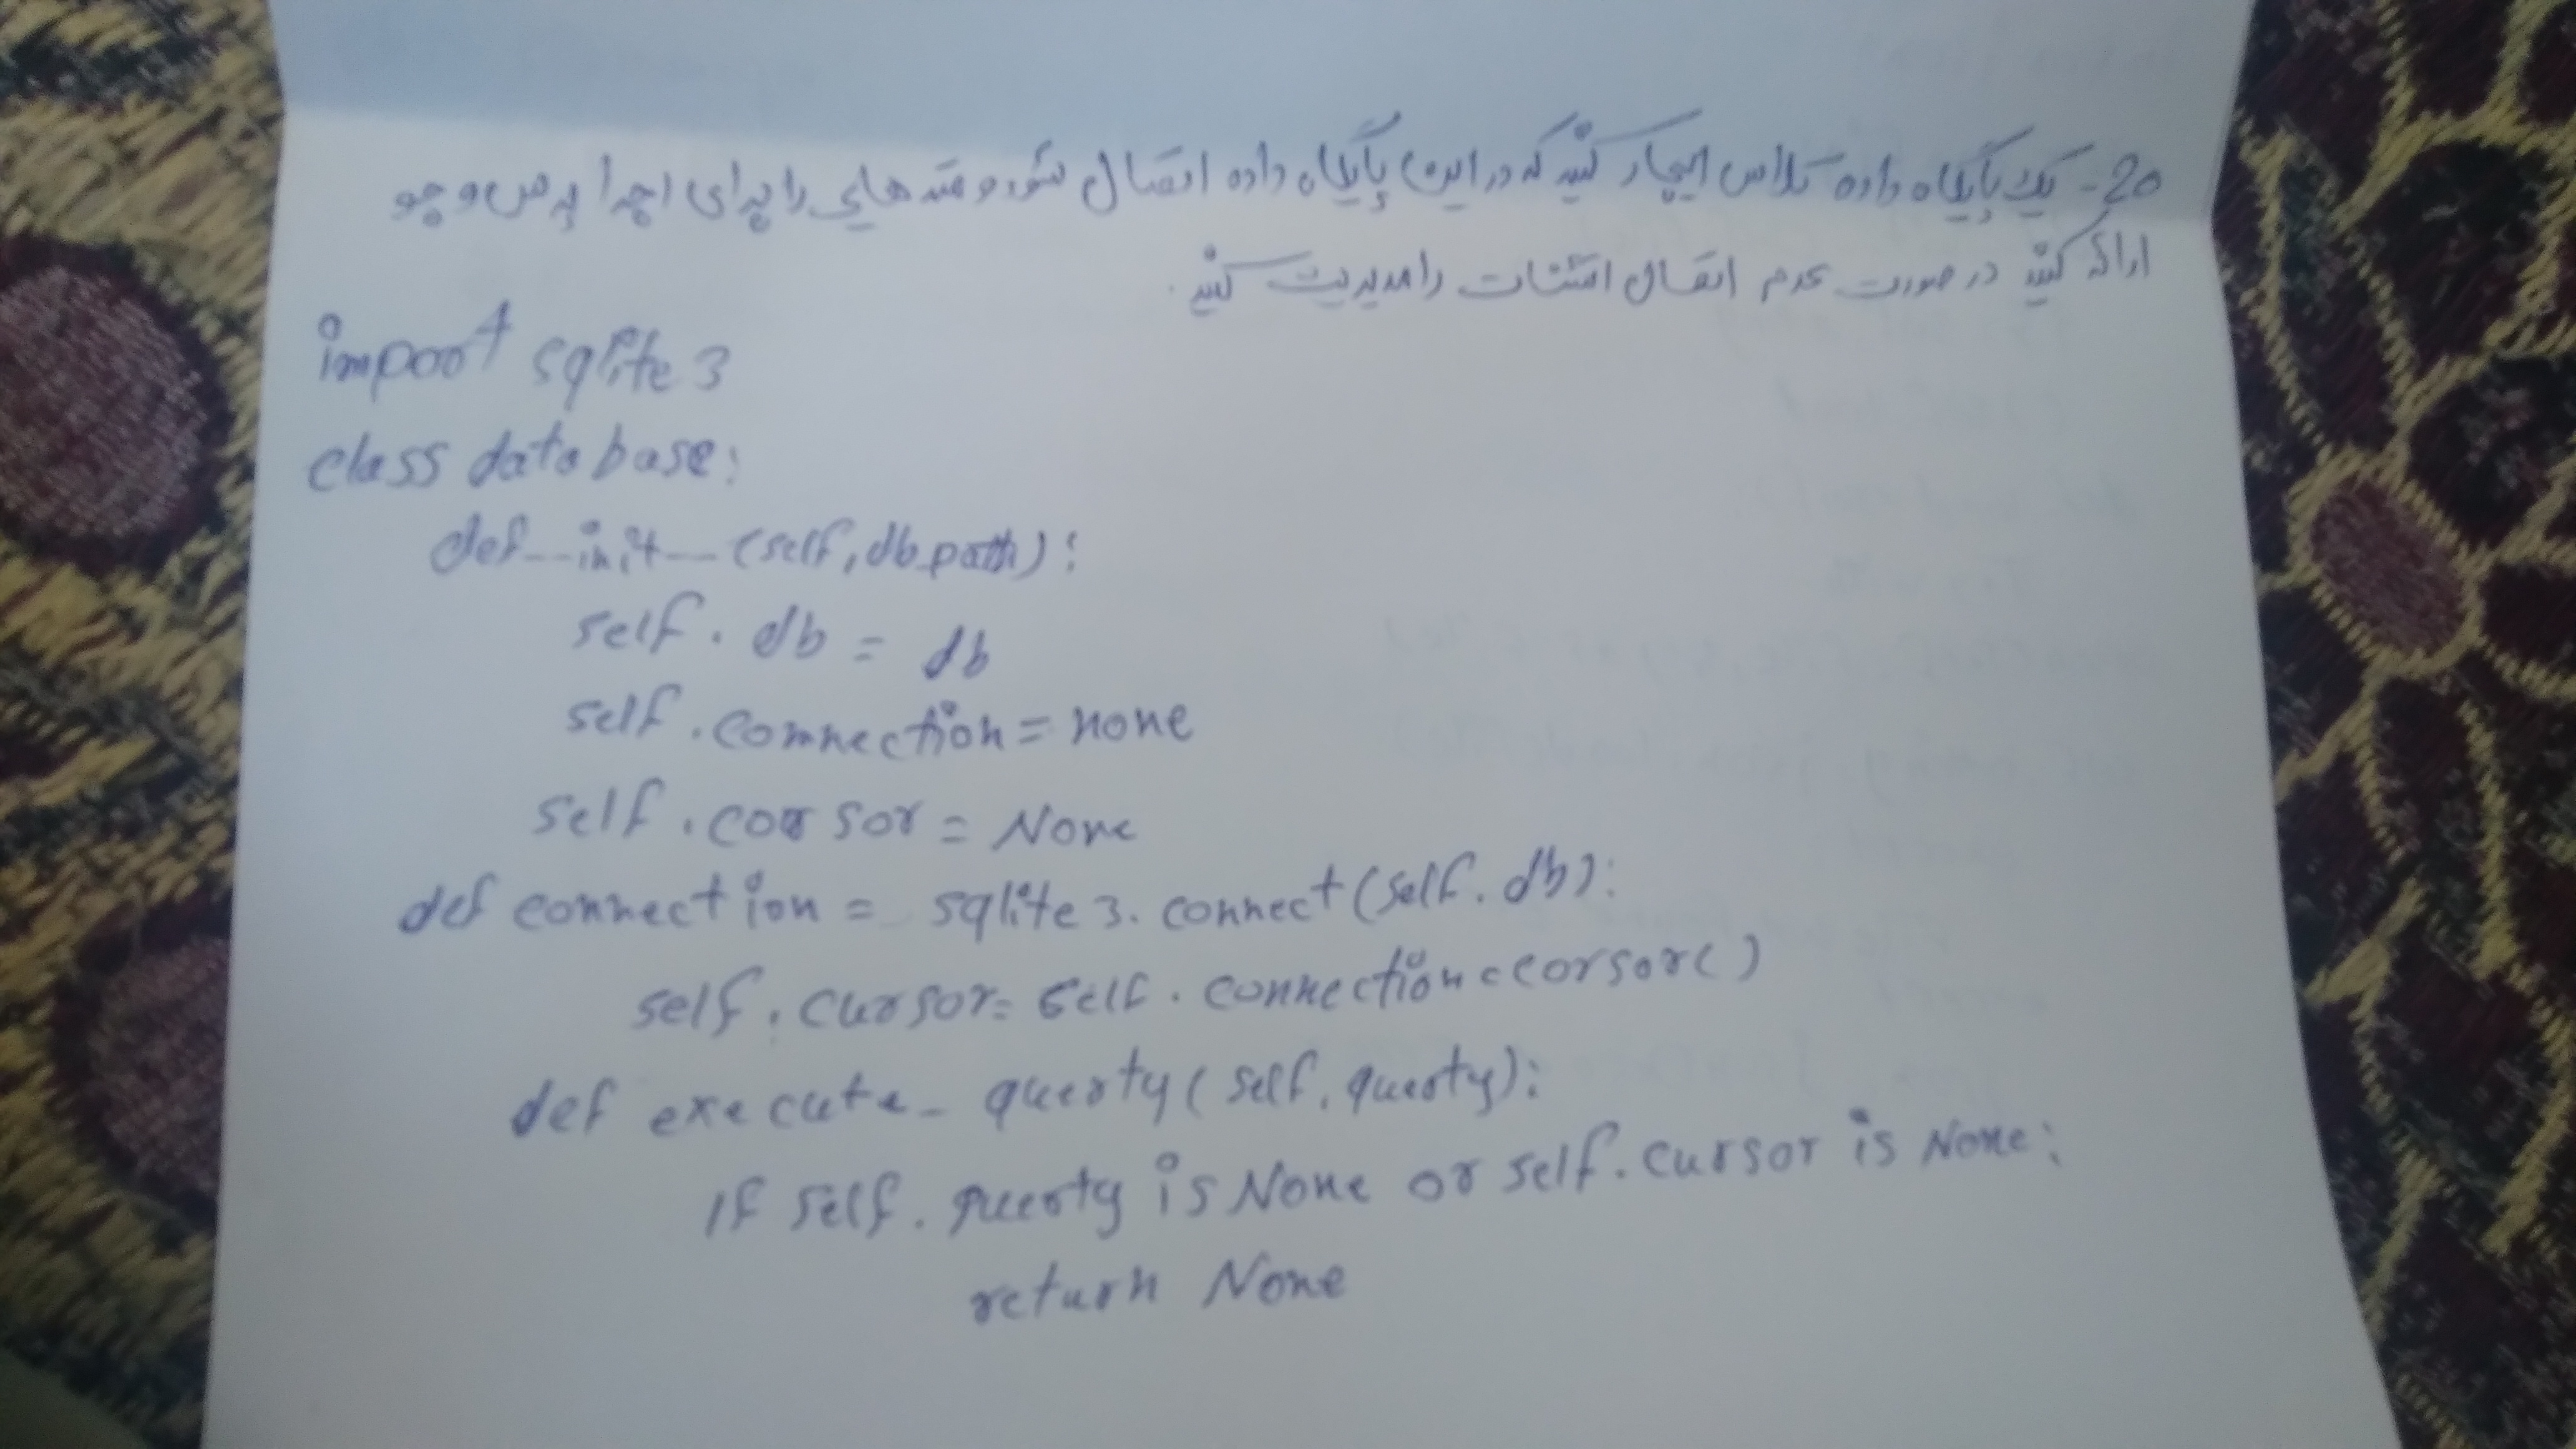 20- یک پایگاه داده کلاس ایجاد کنید که در این پایگاه داده اتصال شود و متد های را برای اجرا پرس و جو
ارائه کنید در صورت عدم اتصال استثنات را مدیریت کنید.
import sqlite3
class data base:
def __init__(self, db_path):
self. db = db
self. connection = none
self. corsor = None
def connection = sqlite3. connect (self. db):
self. cursor = self. connection = corsor()
def execute_querty( self, querty):
If self. querty is None or self. cursor is None:
return None